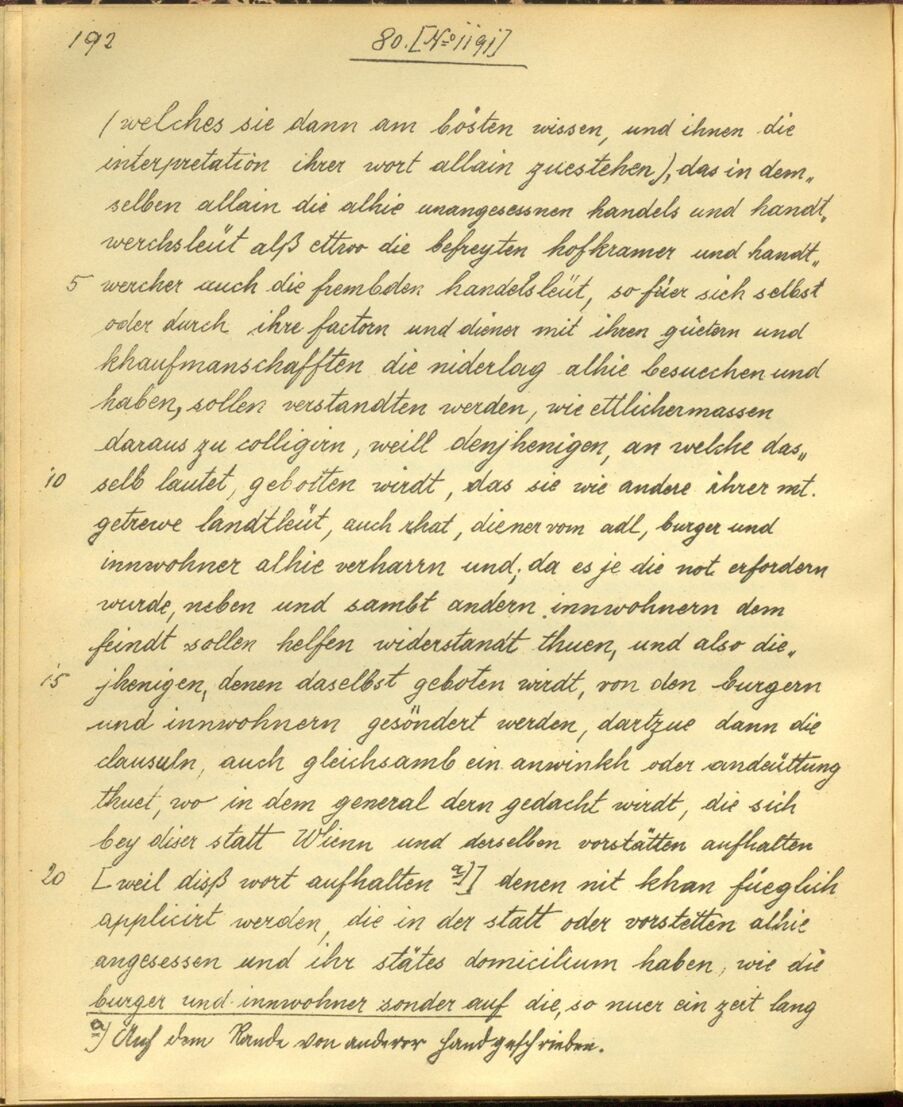 192
80. [No 1191]
(welches sie dann am bösten wissen, und ihnen die
interpretation ihrer wort allain zuestehen), das in dem„
selben allain die alhie unangesessnen handels und handt„
werchsleüt alß ettwo die befreyten hofkramer und handt„
5 wercher auch die frembden handelsleüt, so füer sich selbst
oder durch ihre factorn und diener mit ihren güetern und
khaufmanschafften die niderlag alhie besuechen und
haben, sollen verstandten werden, wie ettlichermassen
daraus zu colligirn, weill denjhenigen, an welche das„
10 selb lautet, gebotten wirdt, das sie wie andere ihrer mt.
getrewe landtleüt, auch rhat, diener vom adl, burger und
innwohner alhie verharrn und, da es je die not erfordern
wurde, neben und sambt andern innwohnern dem
feindt sollen helfen widerstandt thuen, und also die„
15 jhenigen, denen daselbst geboten wirdt, von den burgern
und innwohnern gesöndert werden, dartzue dann die
clausuln, auch gleichsamb ein anwinkh oder andeüttung
thuet, wo in dem general dern gedacht wirdt, die sich
bey diser statt Wienn und derselben vorstätten aufhalten
20 [weil disß wort aufhalten a)] denen nit khan füeglich
applicirt werden, die in der statt oder vorstetten alhie
angesessen und ihr stätes domicilium haben, wie die
burger und innwohner sonder auf die, so nuer ein zeit lang
a) Auf dem Rande von anderer Hand geschrieben.